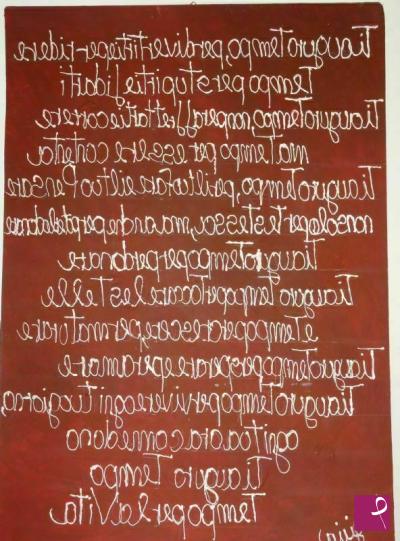 Ti auguro Tempo, per divertirti e per ridere
Tempo per stupirti e fidarti
Ti auguro Tempo, non per affrettarti e correre
ma Tempo per essere contenta
Ti auguro Tempo, per il tuo fare e il tuo Pensare
non solo per te stessa, ma anche per
Ti auguro Tempo per perdonare
Ti auguro Tempo per toccare le stelle
e Tempo per crescere, per maturare
Ti auguro Tempo per sperare e per amare
Ti auguro Tempo per vivere ogni tuo giorno,
ogni tua ora come dono
Ti auguro Tempo
Tempo per la Vita